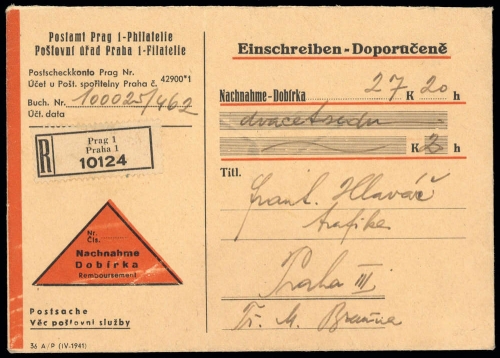 Postamt Prag 1-Philatelie
Poštovní úřad Praha 1-Filatelie
Postscheckkonto Prag Nr.
Účet u Pošt. spořitelny Praha č. 42900*1
Buch. Nr. 100025/462
Účt. data
R
Prag 1
Praha 1
10124
Nr.
Čís.
Nachnahme
Dobírka
Remboursement
Postsache
Věc poštovní služby
36 A/P (IV.-1941)
Einschreiben-Doporučeně
Nachnahme-Dobírka 27 K 20 h
dvacetsedm
K h
Titl.
Frant. Hlaváč
trafika
Praha III
Tř. M.